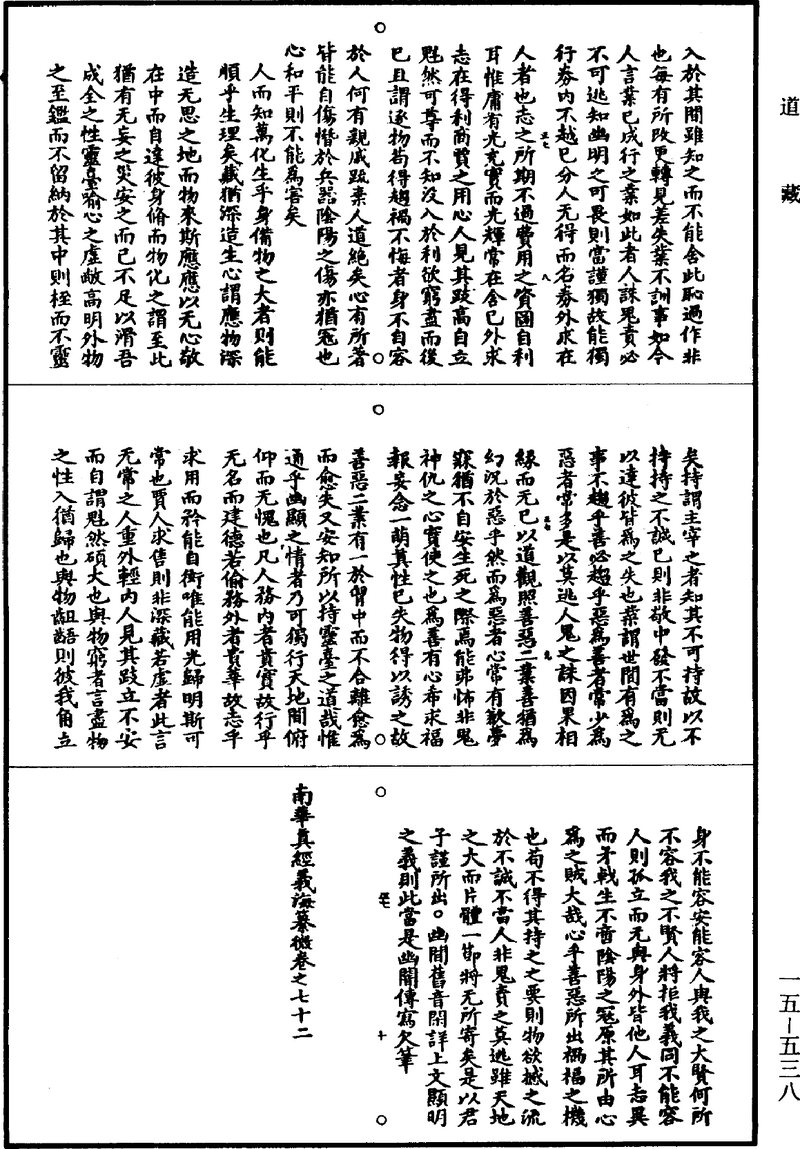 道藏
入於其間雖知之而不能舍此恥過作非
也每有所改更轉見差失業不訓事如今
人言業已成行之業如此者人誅鬼責必
不可逃知幽明之可畏則當謹獨故能獨
行券內不越已分人无得而名券外求在
人者也志之所期不過費用之資圖自利
耳惟庸有光充實而光輝常在舍已外求
志在得利商賈之用心人見其跂高自立
魁然可尊而不知沒入於利欲窮盡而後
已且謂逐物苟得趨禍不悔者身不自容
於人何有親戚疏棄人道絕矣心有所著
皆能自傷憯於兵器陰陽之傷亦猶寇也
心和平則不能為害矣
人而知萬化生乎身備物之大者則能
順乎生理矣藏猶深造生心謂應物深
造无思之地而物來斯應應以无心敬
在中而自達彼身脩而物化之謂至此
猶有无妄之災安之而已不足以滑吾
成全之性靈臺喻心之虛敞高明外物
之至鑑而不留納於其中則桎而不靈
矣持謂主宰之者知其不可持故以不
持持之不誠已則非敬中發不當則无
以達彼皆為之失也業謂世間有為之
事不趨乎善必趨乎惡為善者常少為
惡者常多是以莫逃人鬼之誅因果相
緣而无已以道觀照善惡二業善猶為
幻況於惡乎然而為惡者心常有歉夢
寐猶不自安生死之際焉能弗怖非鬼
神仇之心實使之也為善有心希求福
報妄念一萌真性已失物得以誘之故
善惡二業有一於胷中而不合離愈為
而愈失又安知所以持靈臺之道哉惟
通乎幽顯之情者乃可獨行天地間俯
仰而无愧也凡人務內者貴實故行乎
无名而建德若偷務外者貴華故志乎
求用而矜能自衒唯能用光歸明斯可
常也賈人求售則非深藏若虛者此言
无常之人重外輕內人見其跂立不安
而自謂魁然碩大也與物窮者言盡物
之性入猶歸也與物齟齬則彼我角立
身不能容安能容人與我之大賢何所
不容我之不賢人將拒我義同不能容
人則孤立而无與身外皆他人耳志異
而矛戟生不啻陰陽之寇原其所由心
為之賊大哉心乎善惡所出禍福之機
也苟不得其持之之要則物欲撼之流
於不誠不當人非鬼責之莫逃雖天地
之大而片體一節將无所寄矣是以君
子謹所出。幽間舊音閑詳上文顯明
之義則此當是幽闇傳寫欠筆
南華真經義海纂微卷之七十二
一五-五三八